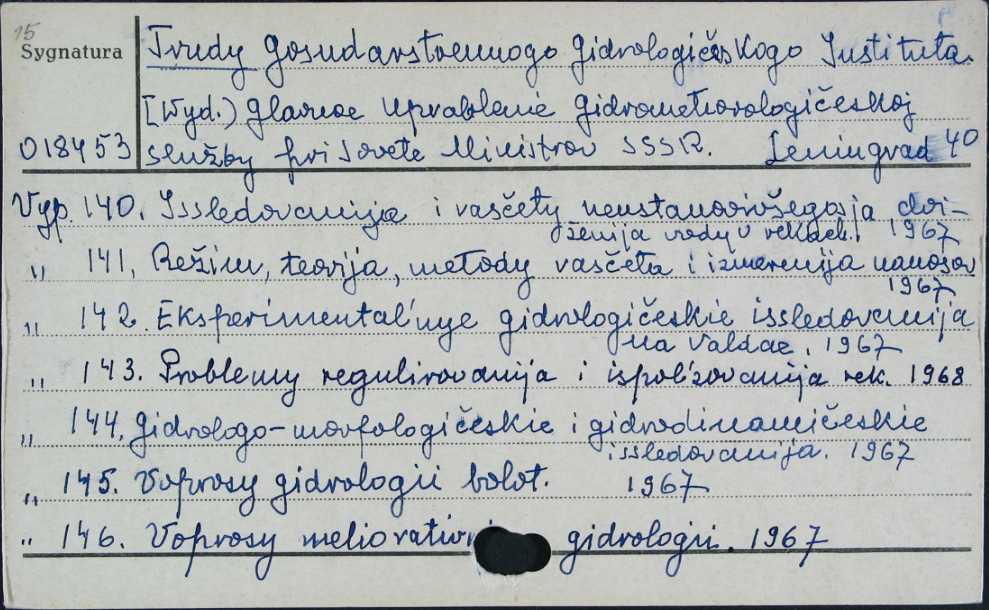 15
Sygnatura
Trudy Gosudarstvennogo Gidrologičeskogo Instituta.
[Wyd.) Glavnoe Upravlenie Gidrometeorologičeskoj
018453 služby pri Sovete Ministrov SSSR. Leningrad 40
Vyp. 140. Issledovanija i rasčety neustanovivšegosja dvi-
ženija vody v rekach. 1967
" 141. Režim, teorija, metody rasčeta i izmerenija nanosov
1967
" 142. Eksperimental'nye gidrologičeskie issledovanija
na Valdae. 1967
" 143. Problemy regulirovanija i ispol'zovanija rek. 1968
" 144. Gidrologo-morfologičeskie i gidrodinamičeskie
issledovanija. 1967
" 145. Voprosy gidrologii bolot. 1967
" 146. Voprosy meliorativn gidrologii. 1967